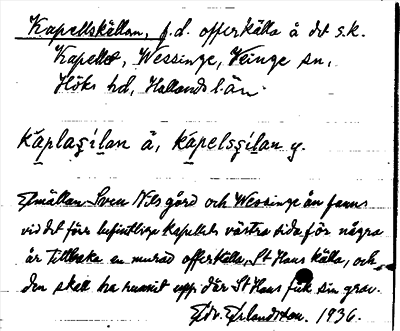 Kapellskällan, f.d. offerkälla å det s.k.
Kapellet, Wessinge, Veinge sn,
Höks hd, Hallands län.
káplaʒílan ä, kápelsʒílan y.
Emällan Sven Nils gård och Wessinge ån fanns
vid det förr befintliga kapellets västra sida för några
år tillbaka en murad offerkälla, St Hans källa, och
den skall ha runnit upp där St Hans fick sin grav.
Edv. Erlandsson. 1936.